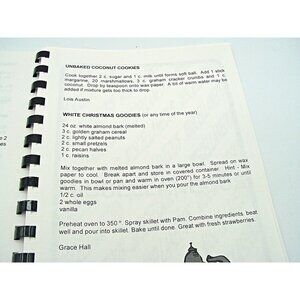 UNBAKED COCONUT COOKIES
Cook together 2 c. sugar and 1 c. milk until forms soft ball. Add 1 stick
margarine, 20 marshmallows, 3 c. graham cracker crumbs and 1 c.
coconut. Drop by teaspoon onto wax paper. A bit of warm water may be
added if mixture gets too thick to drop.
Lois Austin
WHITE CHRISTMAS GOODIES (or any time of the year)
24 oz. white almond bark (melted)
3 c. golden graham cereal
2 c. lightly salted peanuts
2 c. small pretzels
2 c. pecan halves
1 c. raisins
Mix together with melted almond bark in a large bowl. Spread on wax
paper to cool. Break apart and store in covered container. Hint - Mix
goodies in bowl or pan and warm in oven (200°) for 3-5 minutes or until
warm. This makes mixing easier when you pour the almond bark
1/2 c. oil
2 whole eggs
vanilla
Preheat oven to 350°. Spray skillet with Pam. Combine ingredients, beat
well and pour into skillet. Bake until done. Great with fresh strawberries.
Grace Hall